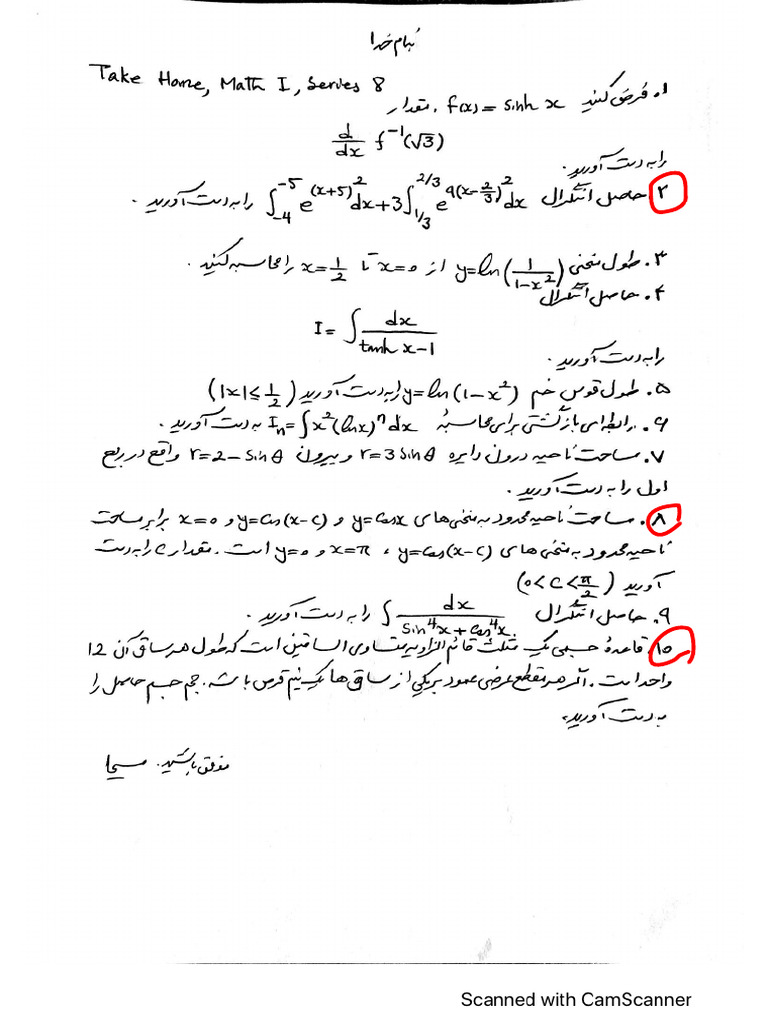 بنام خدا
Take Home, Math I, Series 8
۱. فرض کنید f(x) = sinh x. مقدار
d/dx f⁻¹(√3)
را به دست آورید.
۲. حاصل انتگرال ∫_{-4}^{-5} e^{(x+5)^2} dx + 3∫_{1/3}^{2/3} e^{9(x-2/3)^2} dx را به دست آورید.
۳. طول منحنی y = ln(1/(1-x^2)) از x=0 تا x=1/2 را محاسبه کنید.
۴. حاصل انتگرال
I = ∫ dx/(tanh x - 1)
را به دست آورید.
۵. طول قوس خم y = ln(1-x^2) را به دست آورید (|x| ≤ 1/2)
۶. رابطه‌ای بازگشتی برای محاسبهٔ I_n = ∫ x^2 (ln x)^n dx به دست آورید.
۷. مساحت ناحیه درون دایره r = 3 sin θ و بیرون r = 2 - sin θ واقع در ربع
اول را به دست آورید.
۸. مساحت ناحیه محدود به منحنی‌های y = cos x و y = cos(x-c) و x = 0 برابر مساحت
ناحیه محدود به منحنی‌های y = cos(x-c)، x = π و y = 0 است. مقدار c را به دست
آورید (0 < c < π/2)
۹. حاصل انتگرال ∫ dx/(sin^4 x + cos^4 x) را به دست آورید.
۱۰. قاعدهٔ جسمی یک مثلث قائم الزاویه متساوی الساقین است که طول هر ساق آن 12
واحد است. اگر هر مقطع عرضی عمود بر یکی از ساق‌ها یک نیم قرص باشد. حجم جسم حاصل را
به دست آورید.
موفق باشید. مسیحا
Scanned with CamScanner